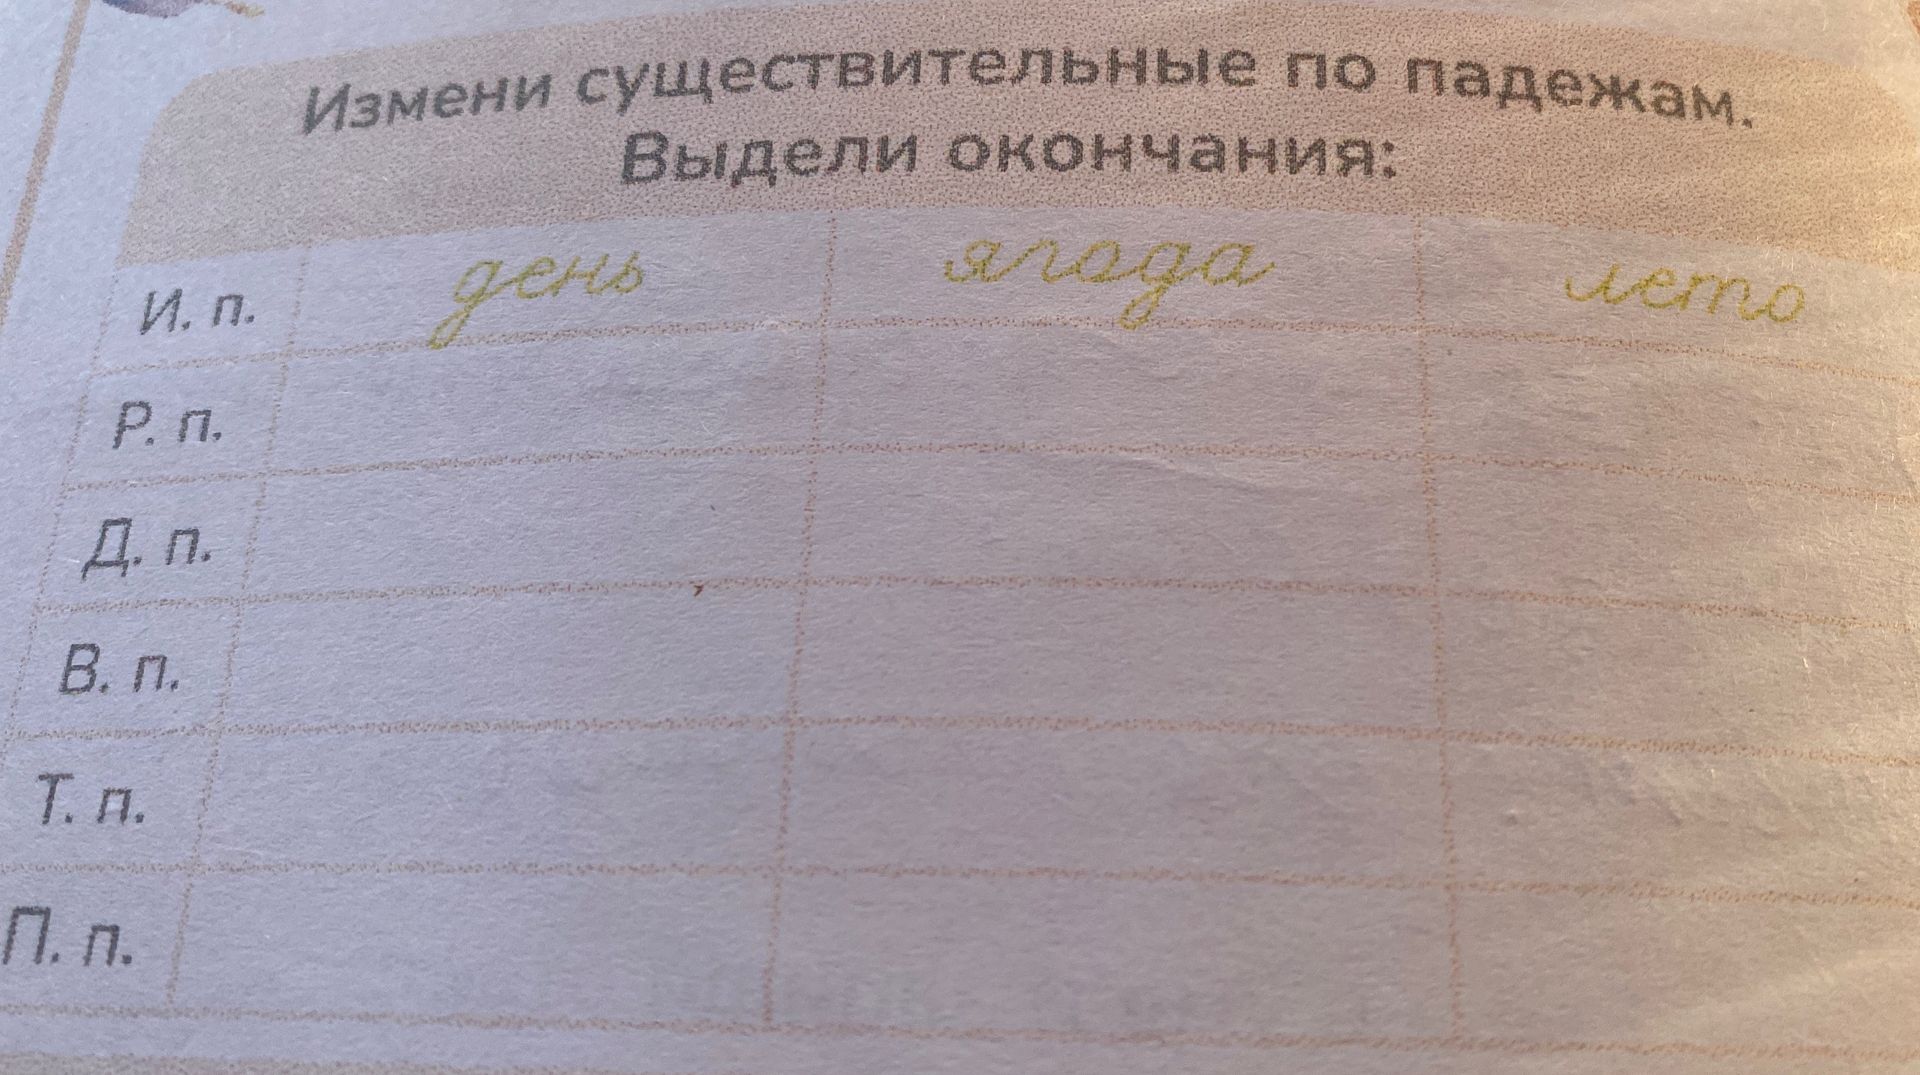 Измени существительные по падежам.
Выдели окончания:
И. п. день ягода лето
Р. п.
Д. п.
В. п.
Т. п.
П. п.